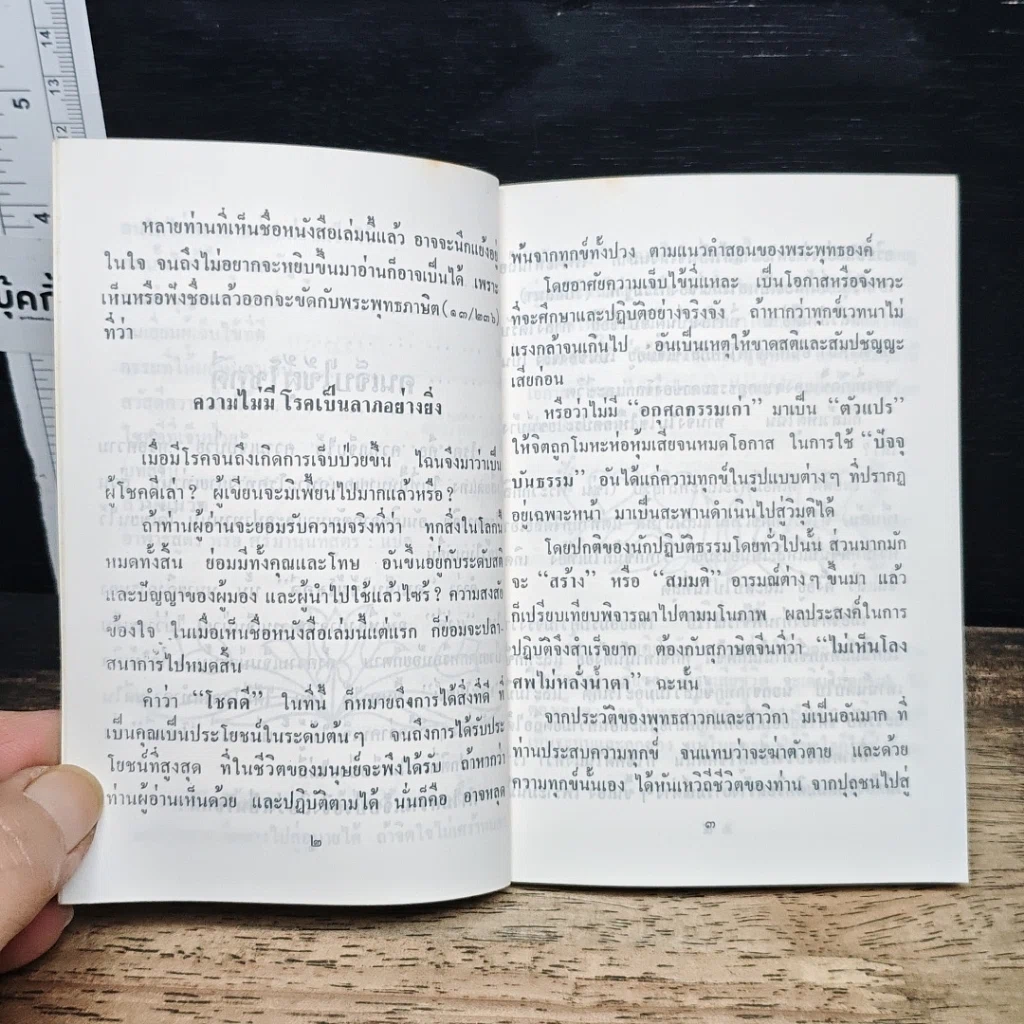 14
5
13
12
4
บุ๊ค
หลายท่านที่เห็นชื่อหนังสือเล่มนี้แล้ว อาจจะนึกแย้งอยู่
ในใจ จนถึงไม่อยากจะหยิบขึ้นมาอ่านก็อาจเป็นได้ เพราะ
เห็นหรือฟังชื่อแล้วออกจะขัดกับพระพุทธภาษิต(๑๓/๒๓๖)
ที่ว่า
ความไม่มี โรคเป็นลาภอย่างยิ่ง
เมื่อมีโรคจนถึงเกิดการเจ็บป่วยขึ้น ไฉนจึงมาว่าเป็น
ผู้โชคดีเล่า? ผู้เขียนจะมิเฟี้ยนไปมากแล้วหรือ?
ถ้าท่านผู้อ่านจะยอมรับความจริงที่ว่า ทุกสิ่งในโลกนี้
หมดทั้งสิ้น ย่อมมีทั้งคุณและโทษ อันขึ้นอยู่กับระดับสติ
และปัญญาของผู้มอง และผู้นำไปใช้แล้วไซร้? ความสงสัย
ข้องใจ ในเมื่อเห็นชื่อหนังสือเล่มนี้แต่แรก ก็ย่อมจะปลา-
สนาการไปหมดสิ้น
คำว่า “โชคดี” ในที่นี้ ก็หมายถึงการได้สิ่งที่ดี ที่
เป็นคุณเป็นประโยชน์ในระดับต้นๆ จนถึงการได้รับประ
โยชน์ที่สูงสุด ที่ในชีวิตของมนุษย์จะพึงได้รับ ถ้าหากว่า
ท่านผู้อ่านเห็นด้วย และปฏิบัติตามได้ นั่นก็คือ อาจหลุด
๒
พ้นจากทุกข์ทั้งปวง ตามแนวคำสอนของพระพุทธองค์
โดยอาศัยความเจ็บไข้นี่แหละ เป็นโอกาสหรือจังหวะ
ที่จะศึกษาและปฏิบัติอย่างจริงจัง ถ้าหากว่าทุกข์เวทนาไม่
แรงกล้าจนเกินไป อันเป็นเหตุให้ขาดสติและสัมปชัญญะ
เสียก่อน
หรือว่าไม่มี “อกุศลกรรมเก่า” มาเป็น “ตัวแปร”
ให้จิตถูกโมหะห่อหุ้มเสียจนหมดโอกาส ในการใช้ “ปัจจุ
บันธรรม” อันได้แก่ความทุกข์ในรูปแบบต่างๆ ที่ปรากฏ
อยู่เฉพาะหน้า มาเป็นสะพานดำเนินไปสู่วิมุติได้
โดยปกติของนักปฏิบัติธรรมโดยทั่วไปนั้น ส่วนมากมัก
จะ “สร้าง” หรือ “สมมติ” อารมณ์ต่างๆ ขึ้นมา แล้ว
ก็เปรียบเทียบพิจารณาไปตามมโนภาพ ผลประสงค์ในการ
ปฏิบัติจึงสำเร็จยาก ต้องกับสุภาษิตจีนที่ว่า “ไม่เห็นโลง
ศพไม่หลั่งน้ำตา” ฉะนั้น
จากประวัติของพุทธสาวกและสาวิกา มีเป็นอันมาก ที่
ท่านประสบความทุกข์ จนแทบว่าจะฆ่าตัวตาย และด้วย
ความทุกข์นั้นเอง ได้หันเหวิถีชีวิตของท่าน จากปุถุชนไปสู่
๓